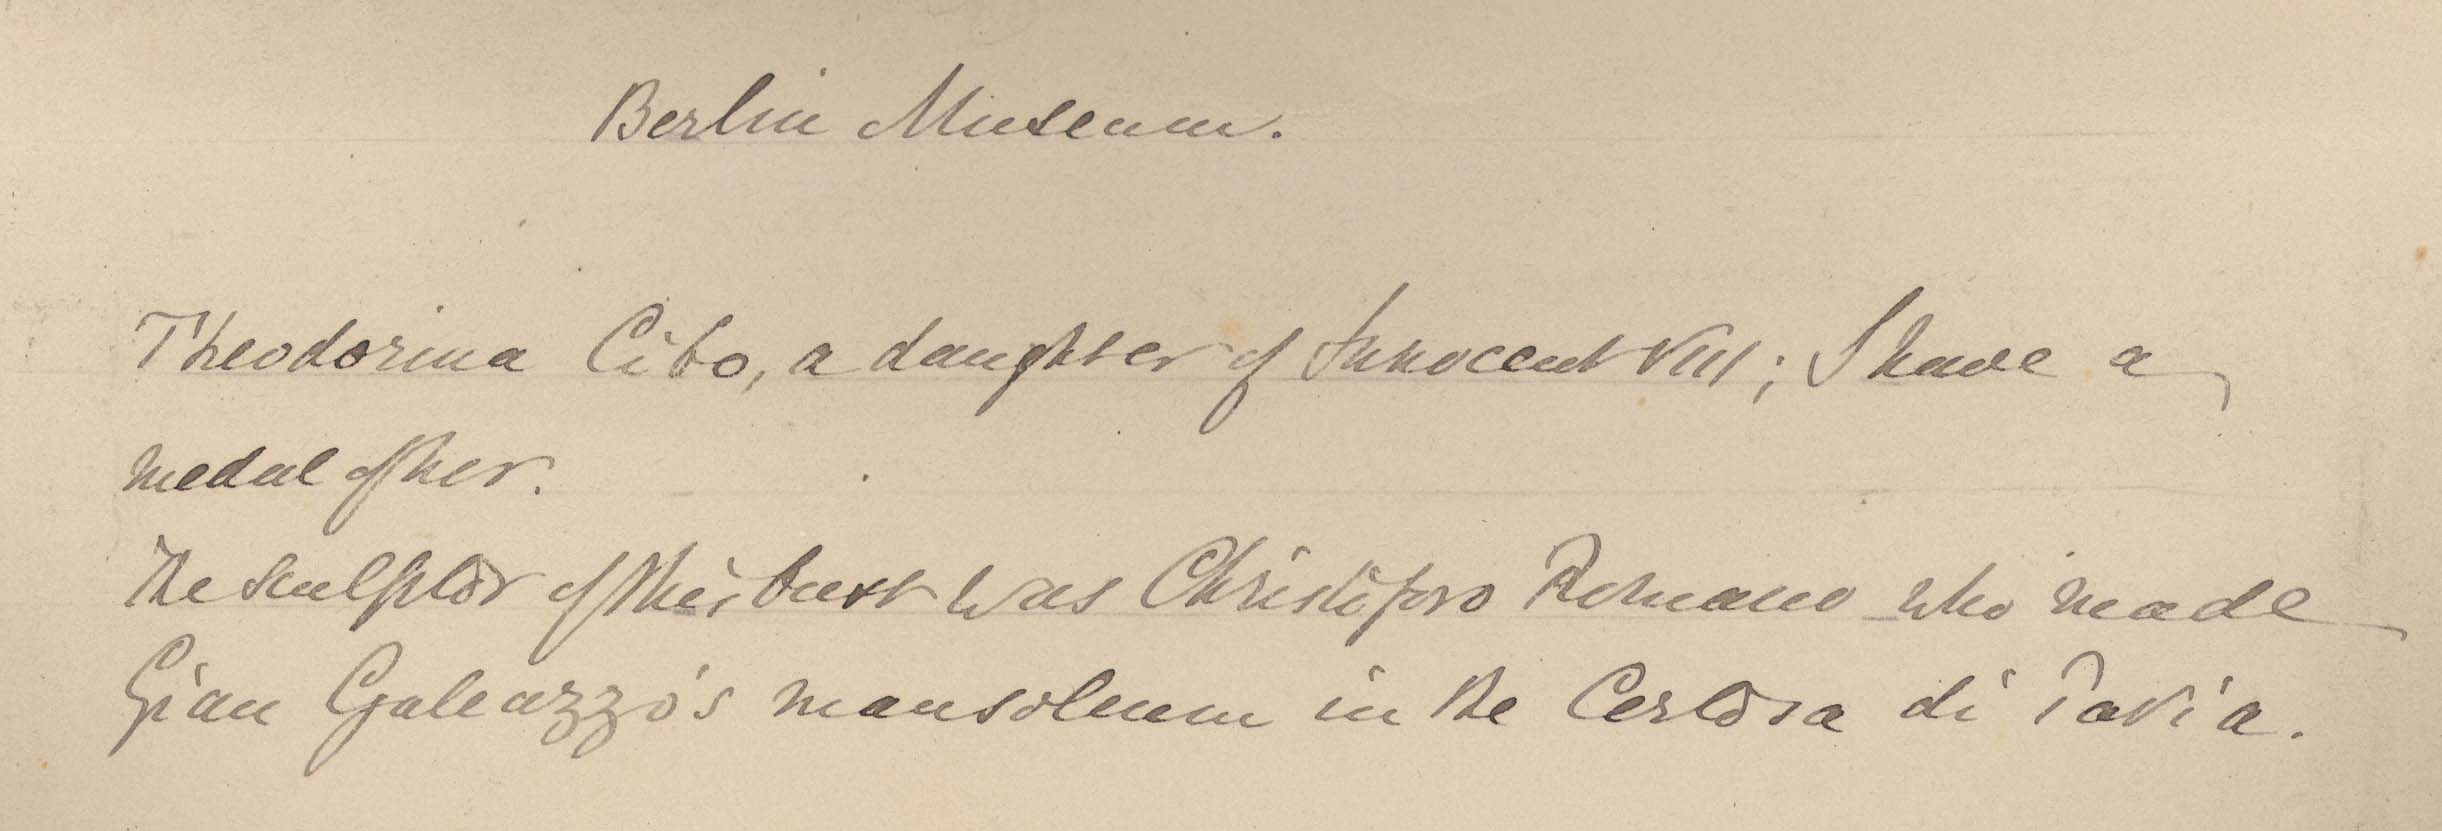 Berlin Museum.
Theodorina Cibo, a daughter of Innocent VIII; I have a
medal of her.
The sculptor of this bust was Christoforo Romano who made
Gian Galeazzo's mausoleum in the Certosa di Pavia.